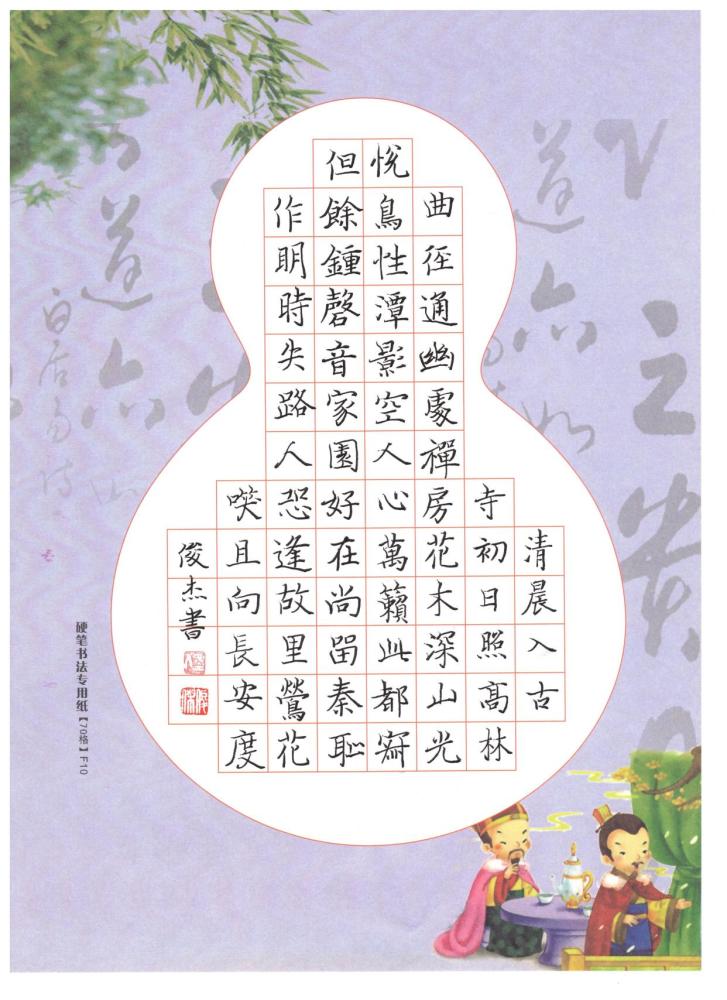 清晨入古
寺初日照高林
曲径通幽處禪房花木深山光
悅鳥性潭影空人心萬籟此都寂
但餘鍾磬音家園好在尚留秦恥
作明時失路人恐逢故里鶯花
咲且向長安度
俊杰書
硬笔书法专用纸【70格】F10